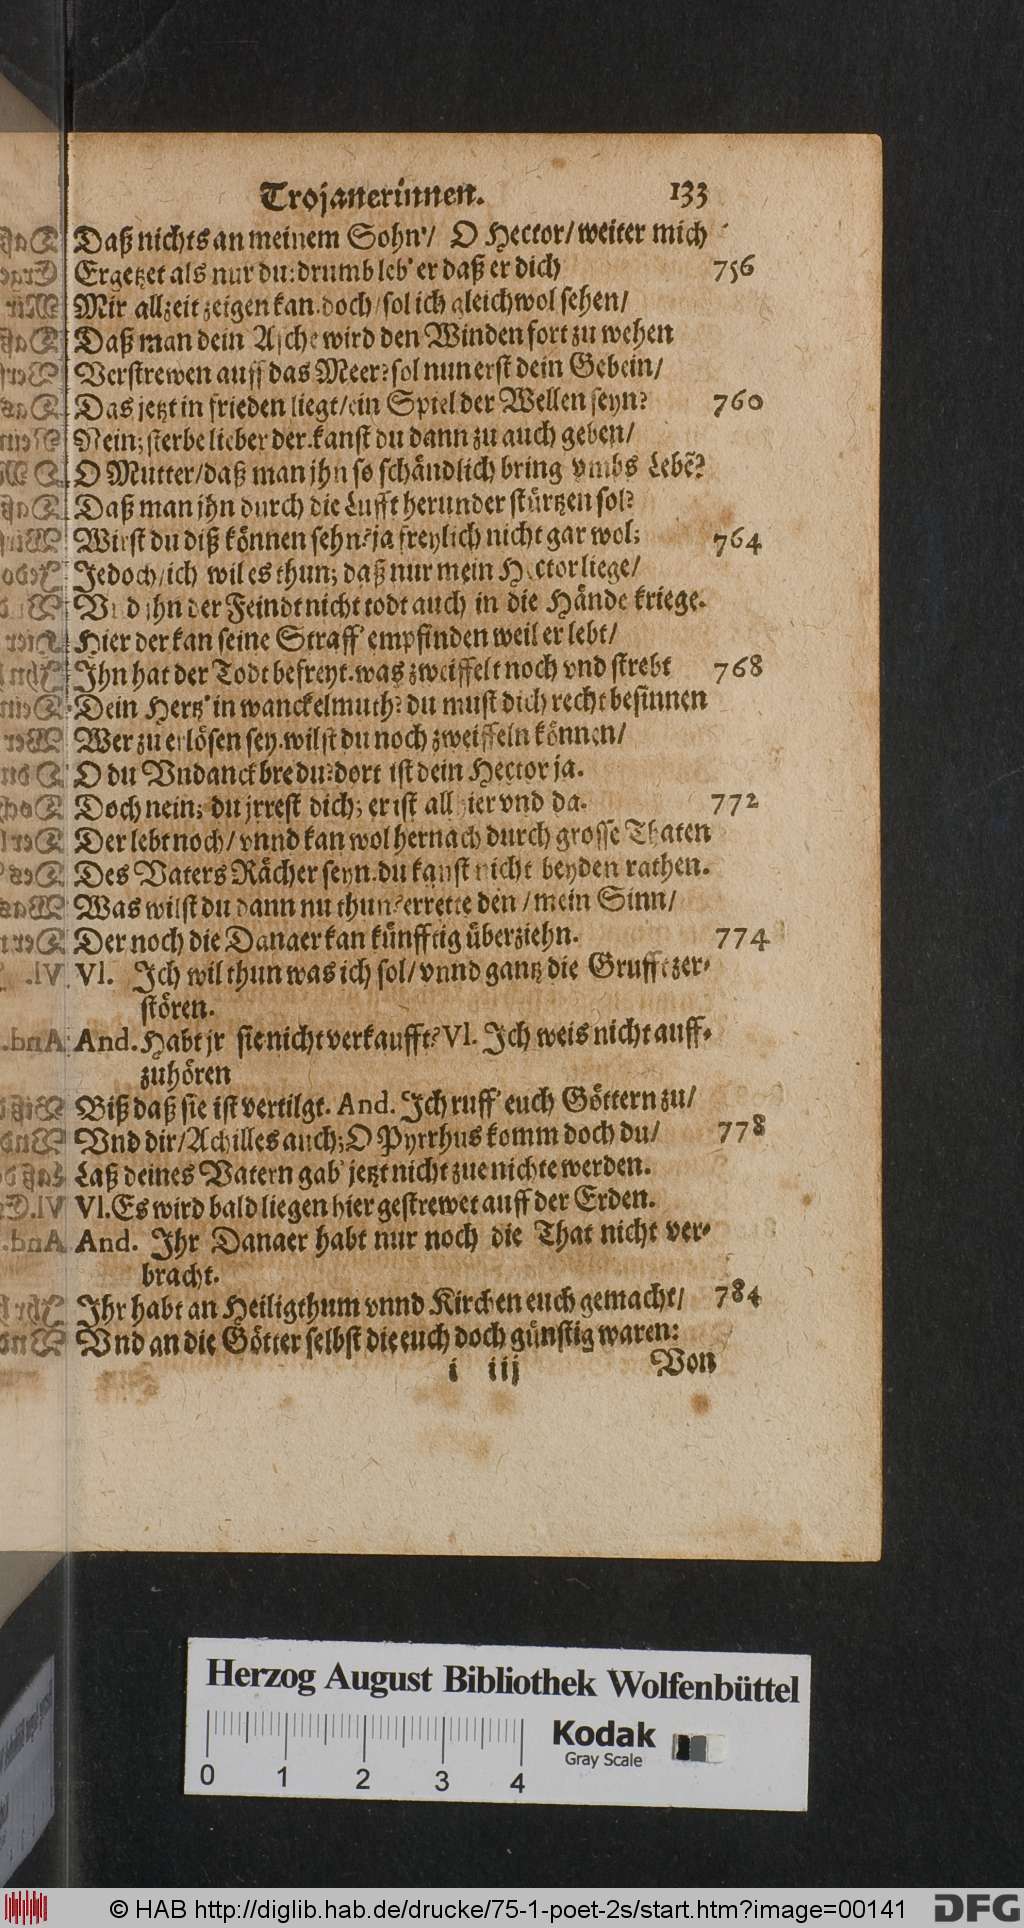 Trojanerinnen. 133
Daß nichts an meinem Sohn'/ O Hector/ weiter mich
Ergetzet als nur du: drumb leb' er daß er dich 756
Mir allzeit zeigen kan. doch/ sol ich gleichwol sehen/
Daß man dein Asche wird den Winden fort zu wehen
Verstrewen auff das Meer? sol nun erst dein Gebein/
Das jetzt in frieden liegt/ ein Spiel der Wellen seyn? 760
Nein; sterbe lieber der. kanst du dann zu auch geben/
O Mutter/ daß man jhn so schändlich bring vmbs Lebē?
Daß man jhn durch die Lufft herunder stürtzen sol?
Wirst du diß können sehn? ja freylich nicht gar wol; 764
Jedoch/ ich wil es thun; daß nur mein Hector liege/
Vnd jhn der Feindt nicht todt auch in die Hände kriege.
Hier der kan seine Straff' empfinden weil er lebt/
Jhn hat der Todt befreyt. was zweiffelt noch vnd strebt 768
Dein Hertz' in wanckelmuth? du must dich recht besinnen
Wer zu erlösen sey. wilst du noch zweiffeln können/
O du Vndanckbre du? dort ist dein Hector ja.
Doch nein; du jrrest dich; er ist allhier vnd da. 772
Der lebt noch/ vnnd kan wol hernach durch grosse Thaten
Des Vaters Rächer seyn. du kanst nicht beyden rathen.
Was wilst du dann nu thun? errette den/ mein Sinn/
Der noch die Danaer kan künfftig überziehn. 774
Vl. Jch wil thun was ich sol/ vnnd gantz die Grufft zer-
stören.
And. Habt jr sie nicht verkaufft? Vl. Jch weis nicht auff-
zuhören
Biß daß sie ist vertilgt. And. Jch ruff' euch Göttern zu/
Vnd dir/ Achilles auch; O Pyrrhus komm doch du/ 778
Laß deines Vatern gab' jetzt nicht zue nichte werden.
Vl. Es wird bald liegen hier gestrewet auff der Erden.
And. Jhr Danaer habt nur noch die That nicht ver-
bracht.
Jhr habt an Heiligthum vnnd Kirchen euch gemacht/ 784
Vnd an die Götter selbst die euch doch günstig waren:
i iij Von
Herzog August Bibliothek Wolfenbüttel
Kodak
Gray Scale
0 1 2 3 4
© HAB http://diglib.hab.de/drucke/75-1-poet-2s/start.htm?image=00141 DFG